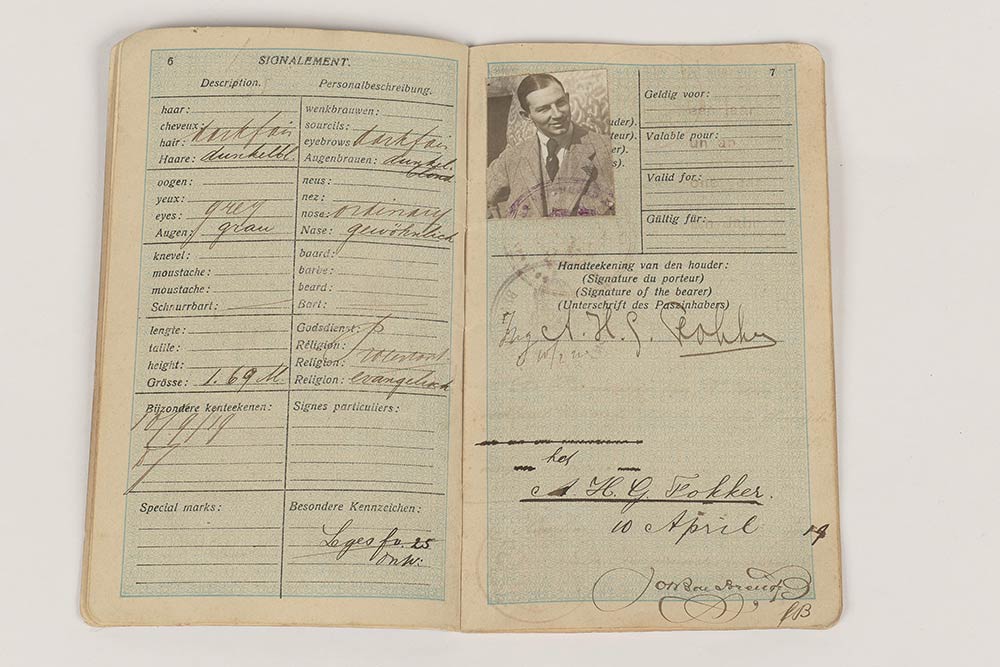 6
SIGNALEMENT.
Description.
Personalbeschreibung.
haar:
cheveux:
hair: darkfair
Haare: dunkelbl.
wenkbrauwen:
sourcils:
eyebrows darkfair
Augenbrauen: dunkel.
blond
oogen:
yeux:
eyes: grey
Augen: grau
neus:
nez:
nose: ordinary
Nase: gewöhnlich
knevel:
moustache:
moustache:
Schnurrbart:
baard:
barbe:
beard:
Bart:
lengte:
taille:
height:
Grösse: 1.69 M
Godsdienst: P
Réligion:
Religion: rotestant.
Religion: evangelisch
Bijzondere kenteekenen:
10/9/19
Signes particuliers:
Special marks:
Besondere Kennzeichen:
Leges fo. 25
7
uder).
teur).
er).
s).
Geldig voor:
een jaar
Valable pour:
un an
Valid for:
one
Gültig für:
Handteekening van den houder:
(Signature du porteur)
(Signature of the bearer)
(Unterschrift des Passinhabers)
A. H. G. Fokker
A. H. G. Fokker.
10 April 19